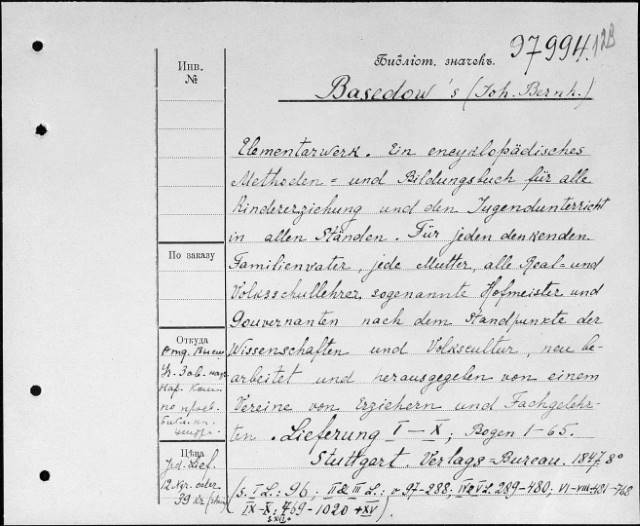 97994.12B
Библіот. значекъ.
Basedow's (Joh. Bernh.)
Инв.
№
Elementarwerk. Ein encyklopädisches
Methoden= und Bildungsbuch für alle
Kindererziehung und den Jugendunterricht
in allen Ständen. Für jeden denkenden
Familienvater, jede Mutter, alle Real= und
Volksschullehrer, sogenannte Hofmeister und
Gouvernanten nach dem Standpunkte der
Wissenschaften und Volkscultur, neu be-
arbeitet und herausgegeben von einem
Vereine von Erziehern und Fachgelehr-
ten. Lieferung I–X; Bogen 1–65.
Stuttgart. Verlags=Bureau. 1847. 8°
(S. I L.: 96; II & III L.: 97–288; IV & V L. 289–480; VI–VIII 481–768
IX–X: 769–1020 + XV)
По заказу
Откуда
Отд. Высш.
Уч. Зав.
Нар. Ком.
по просв.
Цѣна
Jed. Lief.
12 Ngr. oder
39 Kr.